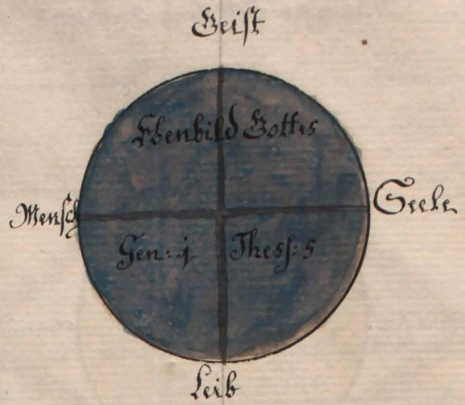 Geist
Ebenbild Gottes
Mensch
Seele
Gen: 1 Thess: 5
Leib